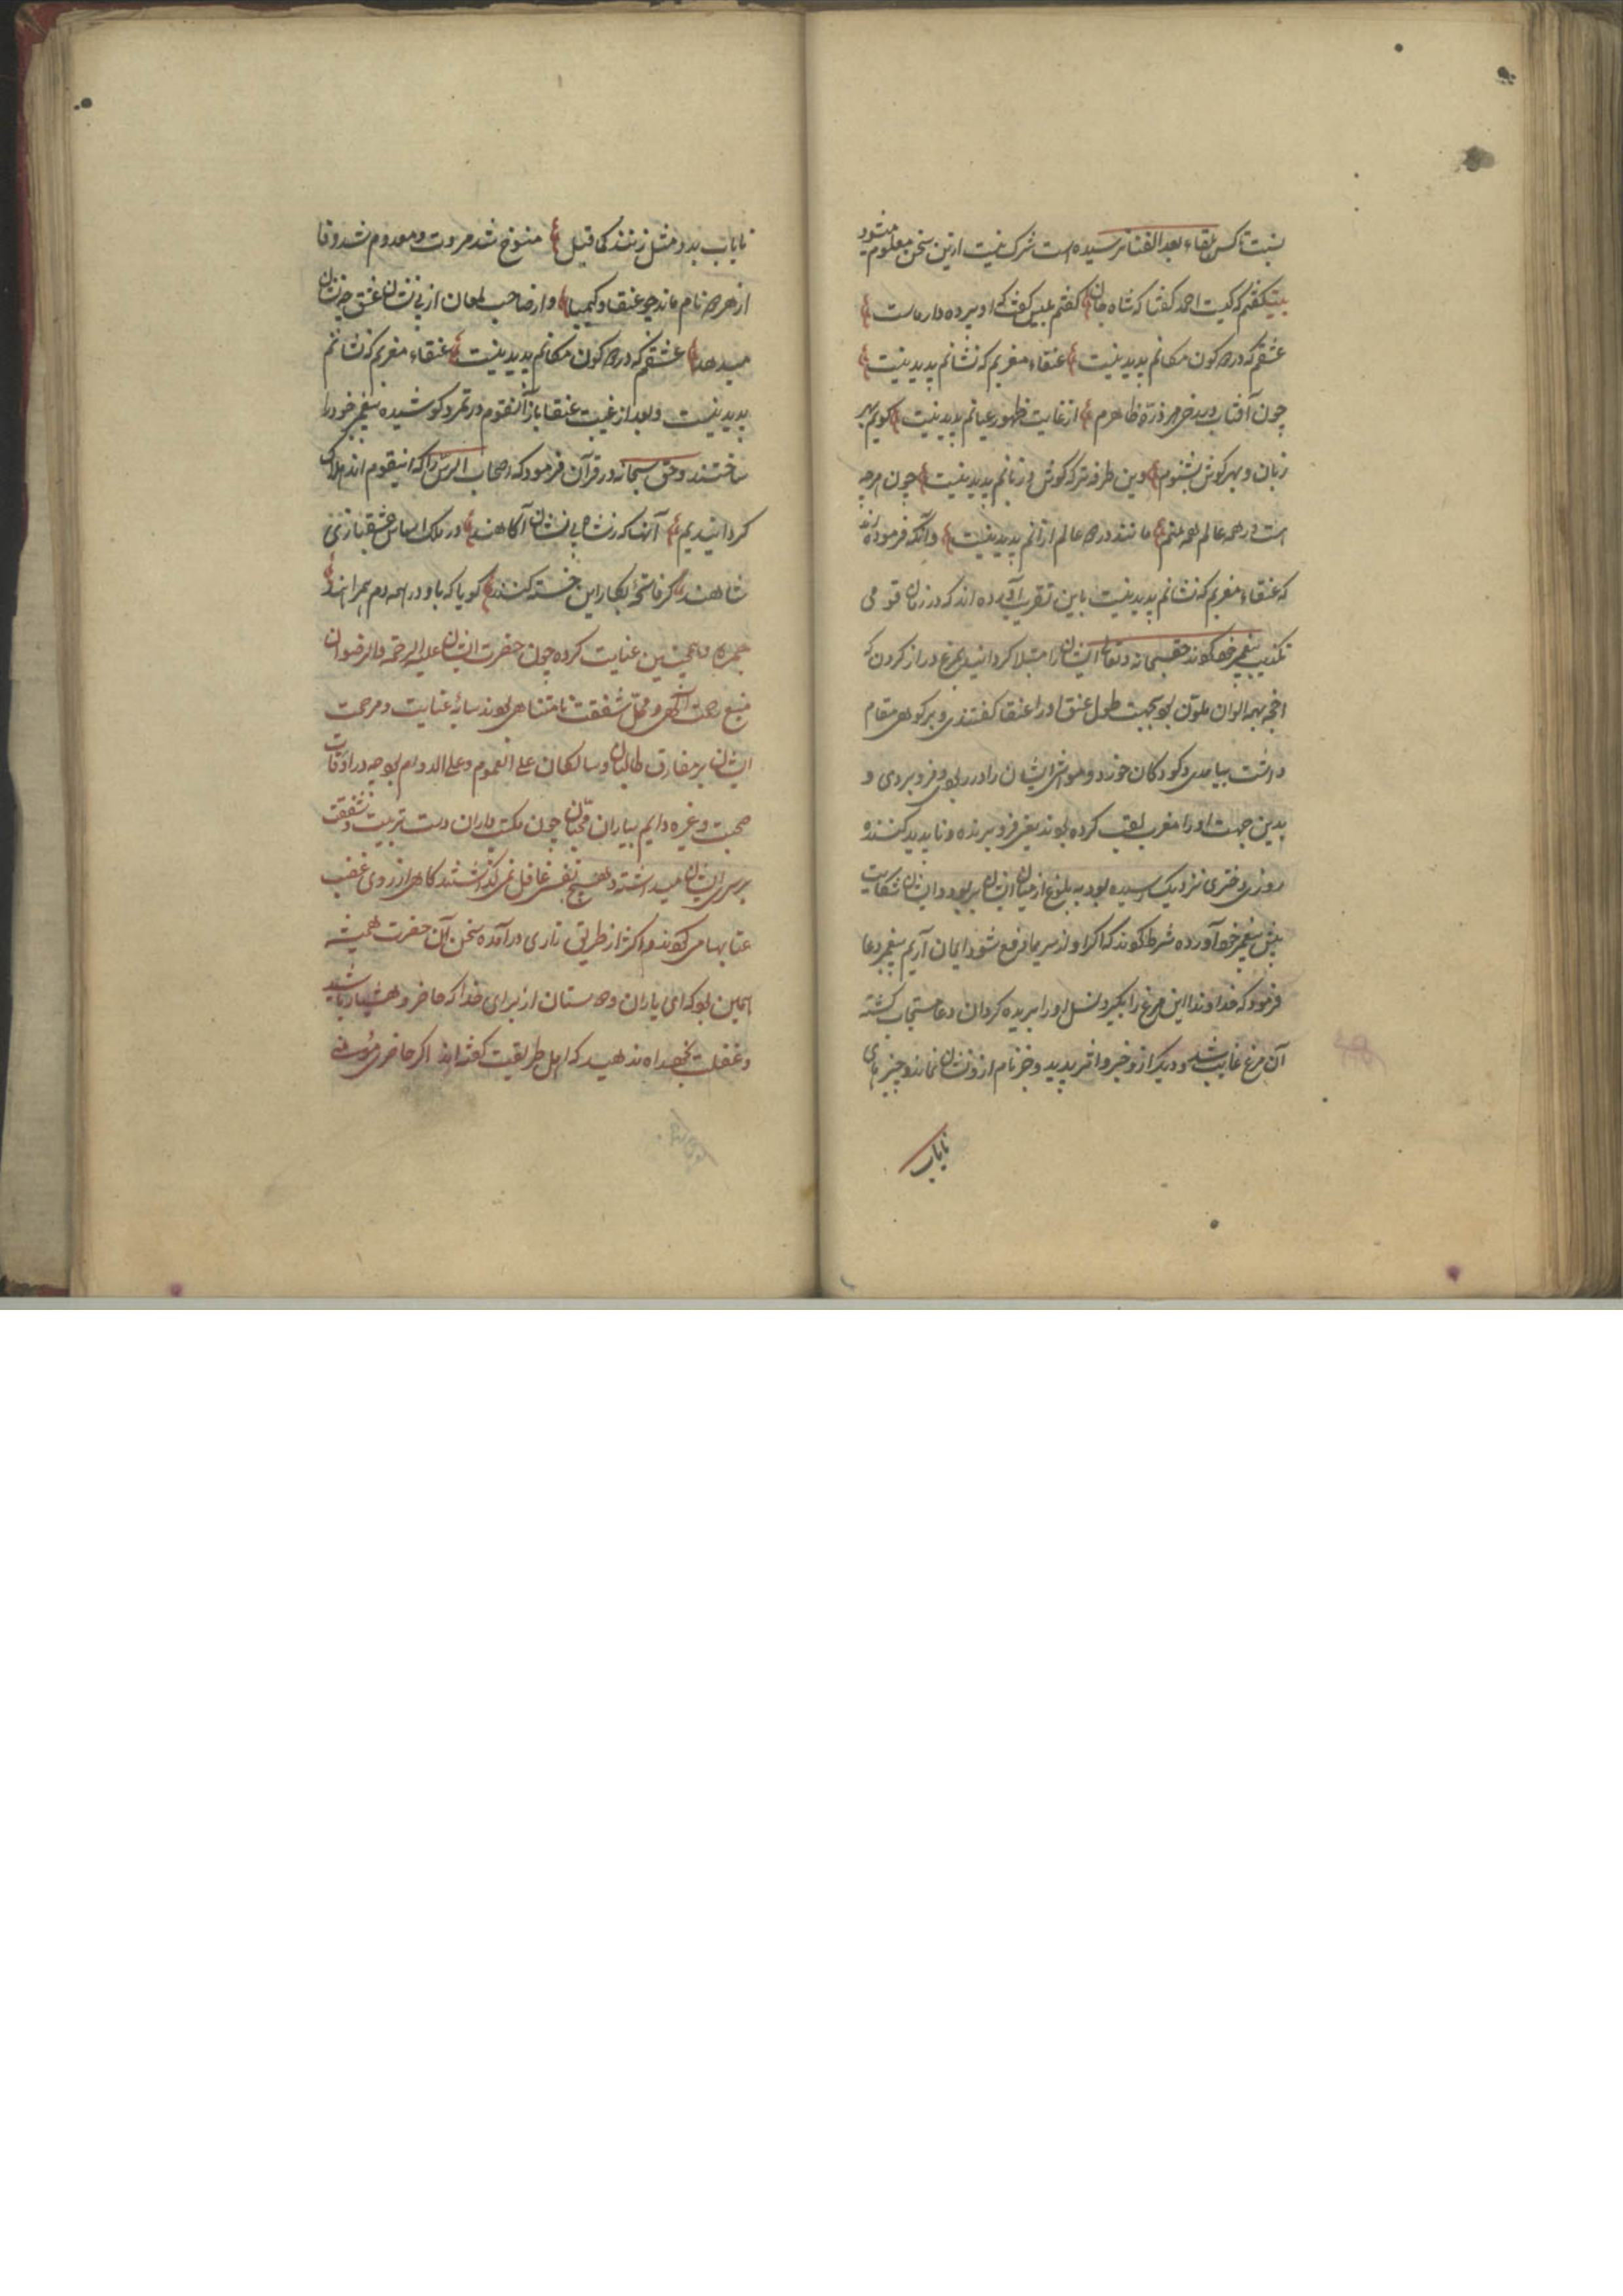 نسبت تا کس ببقاء بعد الفنا نرسیده است شرک نیست ازین سخن معلوم میشود
بیت گفتم که کیست احمد گفتا که شاه جان گفتم بلیس گفت که او پرده دار ماست
عشقم که در دو کون مکانم پدید نیست عنقاء مغربم که نشانم پدید نیست
چون آفتاب در رخ هر ذره ظاهرم از غایت ظهور عیانم پدید نیست گویم بهر
زبان و بهر گوش بشنوم وین طرفه تر که گوش و زبانم پدید نیست چون هرچه
است در همه عالم همه منم مانند در دو عالم ازانم پدید نیست وآنکه فرموده اند
که عنقاء مغربم که نشانم پدید نیست باین تقریب آورده اند که در زمان قومی
تکذیب پیغمبر خود کردند حق سبحانه وتعالی ایشان را مبتلا گردانید بمرغ دراز گردن که
بهمه الوان ملون بود بجهت طول عنق او را عنقا گفتندی و بر کوهی مقام
داشت بیامدی و کودکان خورد و مواشی ایشان را در ربودی و فرو بردی و
بدین جهت او را مغرب لقب کرده بودند یعنی فرو برنده و ناپدید کننده
روزی دختری نزدیک رسیده بود به بلوغ از میان ایشان بربود و ایشان شکایت
پیش پیغمبر خود آورده شرط کردند که اگر او از سر ما رفع شود ایمان آریم پیغمبر دعا
فرمود که خداوندا این مرغ را بگیر و نسل او را بریده گردان دعا مستجاب گشته
آن مرغ غایب شد و دیگر ازو خبر و اثر پدید و جز نام ازو نشان نماند و چیزهای
نایاب
نایاب بدو مثل زنند کما قیل منسوخ شد مروت و معدوم شد وفا
از هر دو نام ماند چو عنقا و کیمیا و از صاحب لمعان از بی نشان عشق چه نشان
میدهد عشقم که در دو کون مکانم پدید نیست عنقاء مغربم که نشانم
پدید نیست و بعد از غیبت عنقا باز آنقوم در تمرد کوشیده پیغمبر خود را
ساختند و حق سبحانه در قرآن فرمود که اصحاب الرس را که اینقوم اند هلاک
گردانیدیم آنها که ز شاه بی نشان آگاهند در ملک اساس عشقبازی
شاهند گر فاتحه بکار این خسته کنند گویا که باو در همه دم همراهند
همچنین عنایت کرده چون حضرت ایشان علیه الرحمة والرضوان
منبع رحمت الهی و محل شفقت نامتناهی بودند سایه عنایت و مرحمت
ایشان بر مفارق طالبان و سالکان علی العموم و علی الدوام بود چه در اوقات
صحبت و غیره دایم بیاران محبان چون یکتن یاران دست تربیت و شفقت
بر سر ایشان میداشتند و بهیچ نفس غافل نمی گذاشتند گاهی از روی غضب
عتابها می کردند و اکثر از طریق زاری در آمده سخن آن حضرت همیشه
همین بود که ای یاران و دوستان از برای خدا که حاضر و هشیار باشید
و غفلت بخود راه ندهید که اهل طریقت گفته اند اگر حاضری مؤمنی